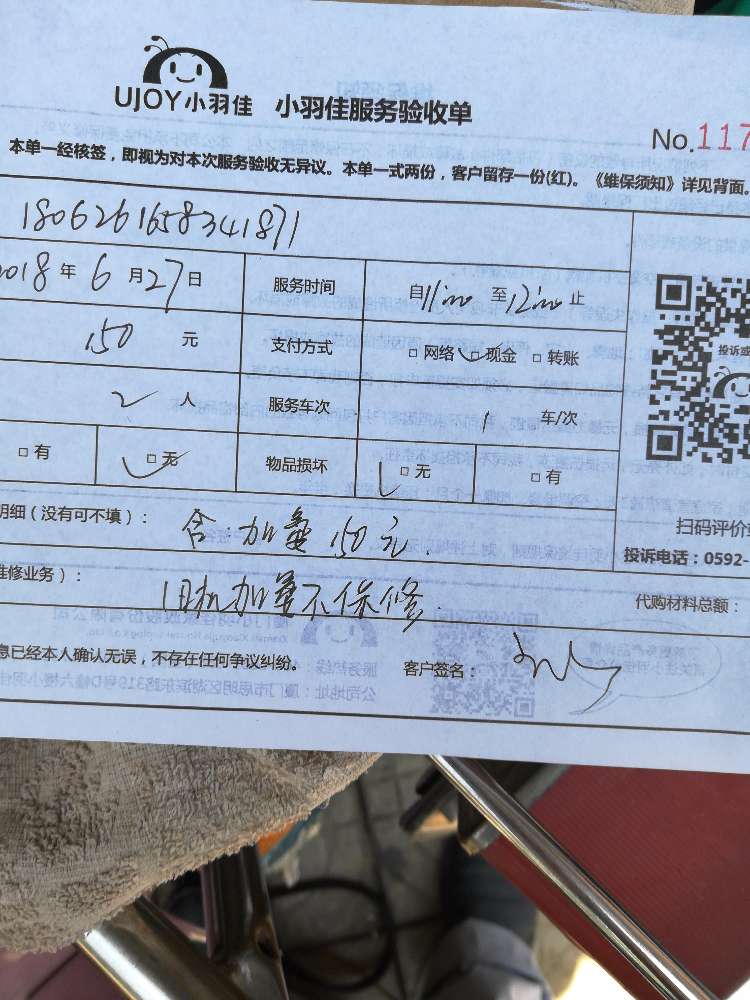 UJOY小羽佳 小羽佳服务验收单
No.117
本单一经核签，即视为对本次服务验收无异议。本单一式两份，客户留存一份(红)。《维保须知》详见背面。
1806261658341871
2018年6月27日 服务时间 自11:00至12:00止
150元 支付方式 □网络 □现金 □转账
投诉或
2人 服务车次 1 车/次
□有 □无 物品损坏 □无 □有
明细（没有可不填）： 含：加氟150元.
扫码评价
投诉电话：0592-
维修业务）： 旧机加氟不保修.
代购材料总额：
息已经本人确认无误，不存在任何争议纠纷。 客户签名：